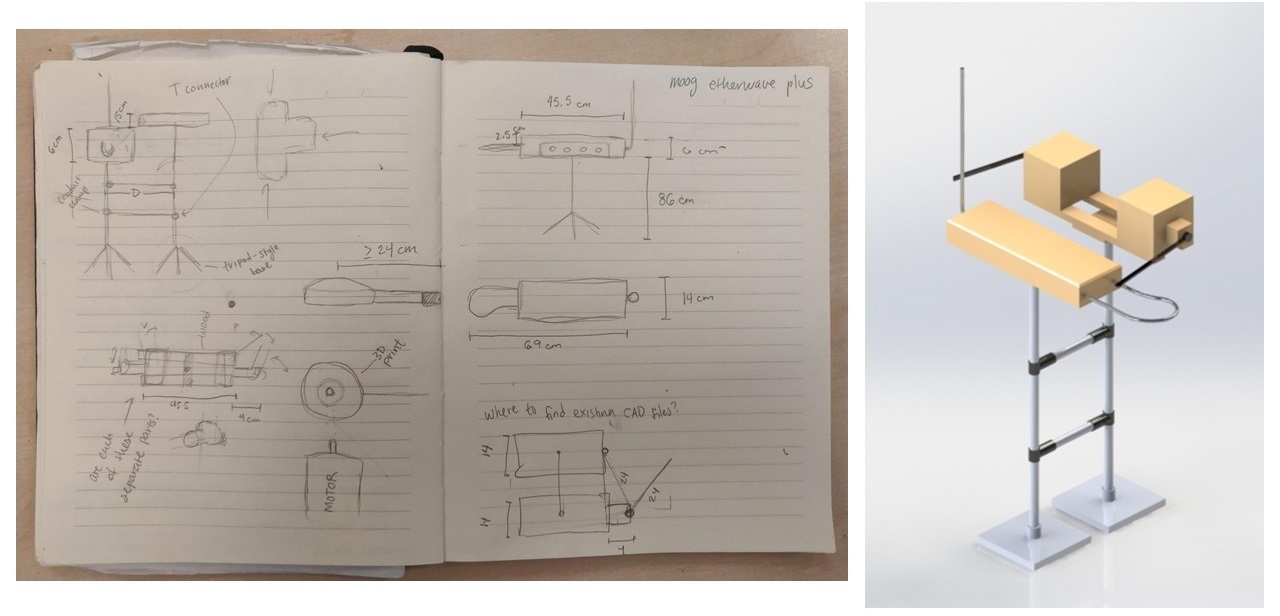 T connector
15cm
6cm
D
conduit clamp
tripod-style
base
≥ 24 cm
wood
3D
print
45.5
4cm
are each
of these
separate parts?
MOTOR
moog etherwave plus
45.5 cm
2.5 cm
6 cm
86 cm
14 cm
69 cm
where to find existing CAD files?
14
24
24
14
4